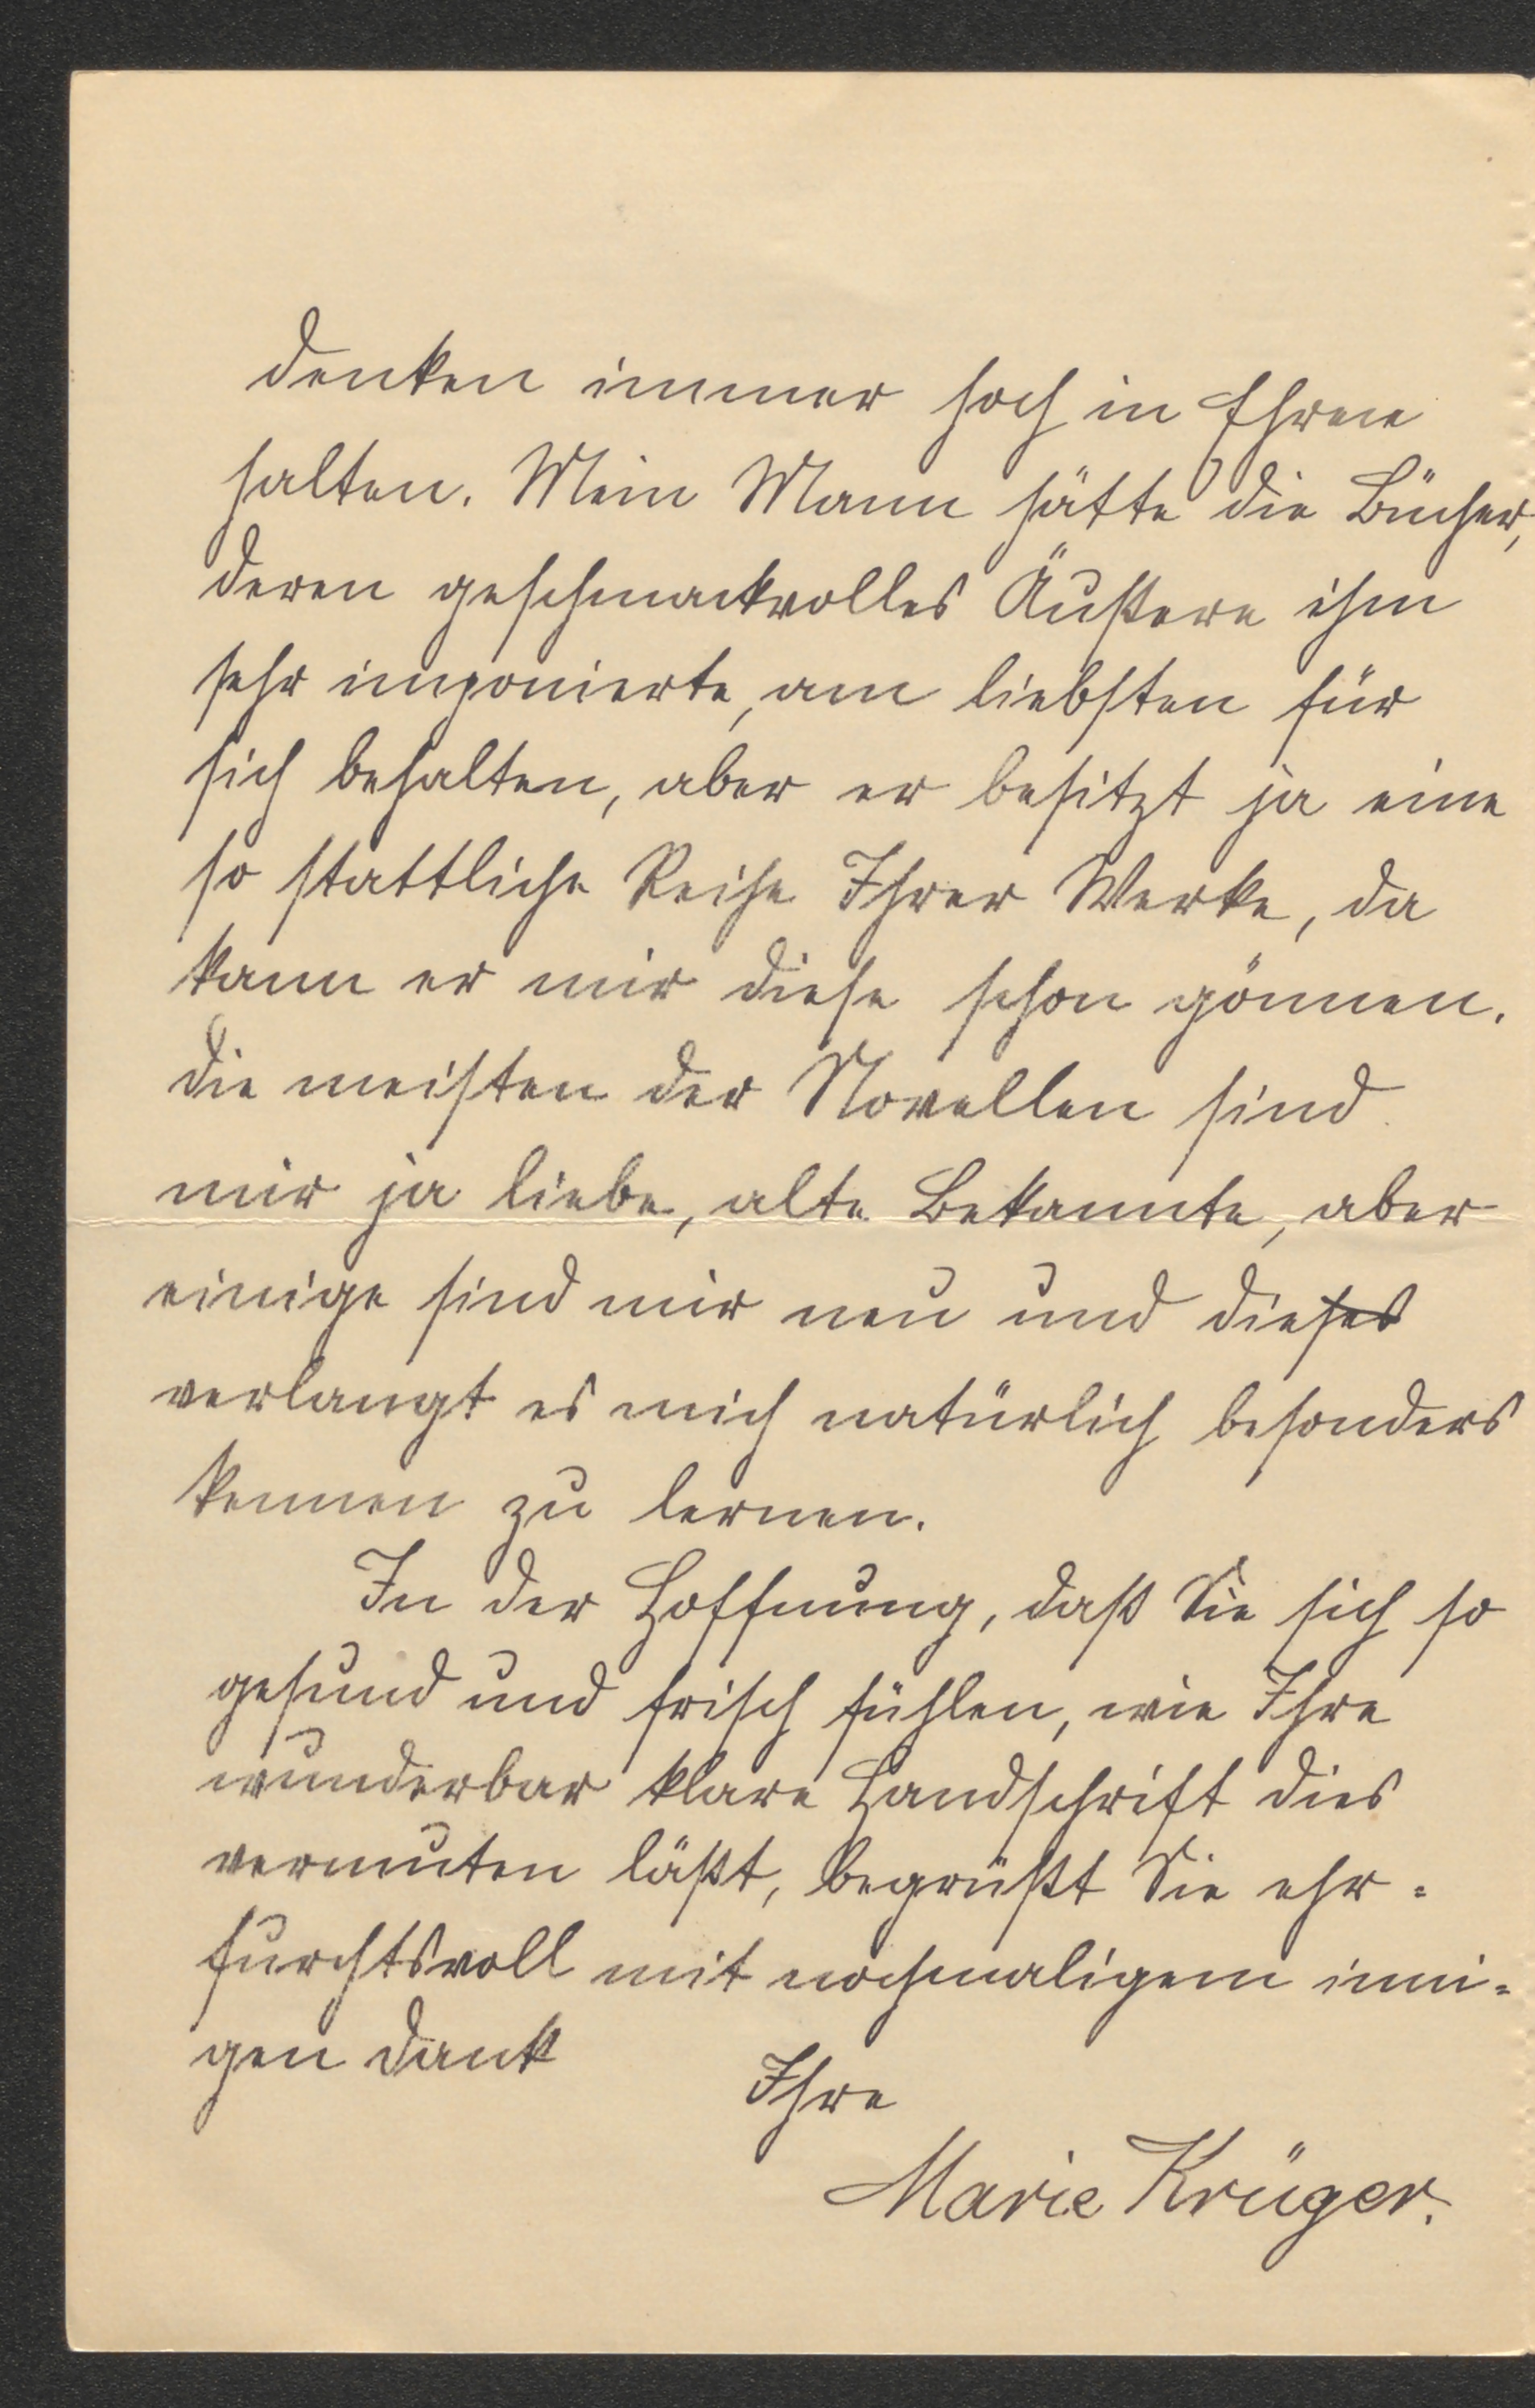 denken immer hoch in Ehren
halten. Mein Mann hätte die Bücher,
deren geschmackvolles Äußere ihm
sehr imponierte, am liebsten für
sich behalten, aber er besitzt ja eine
so stattliche Reihe Ihrer Werke, da
kann er mir diese schon gönnen.
Die meisten der Novellen sind
mir ja liebe, alte Bekannte, aber
einige sind mir neu und dieses
verlangt es mich natürlich besonders
kennen zu lernen.
In der Hoffnung, daß Sie sich so
gesund und frisch fühlen, wie Ihre
wunderbar klare Handschrift dies
vermuten läßt, begrüßt Sie ehr-
furchtsvoll mit nochmaligem inni-
gen Dank
Ihre
Marie Krüger.